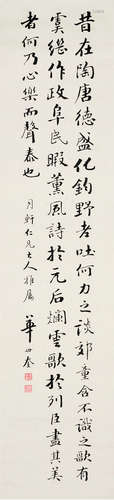 昔在陶唐德盛化鈞野老吐何力之談郊童含不識之歌有
虞繼作政阜民暇薰風詩於元后爛雲歌於列臣盡其美
者何乃心樂而聲泰也
月軒仁兄大人雅屬
華世奎